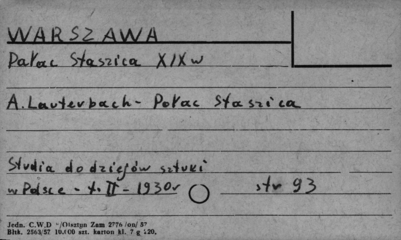 WARSZAWA
Pałac Staszica XIX w
A. Lauterbach - Pałac Staszica
Studia do dziejów sztuki
w Polsce - t. II - 1930r str 93
Jedn. C.W.D Olsztyn Zam 2776
Błtk. 2563/57 10.000 szt. karton kl. 7 g 120.